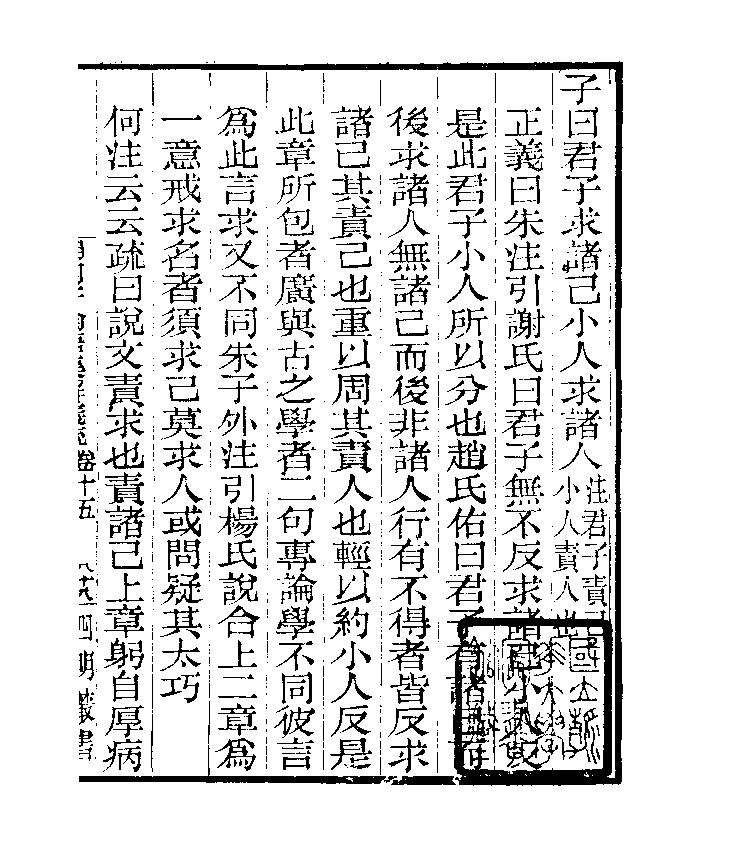 子曰君子求諸己小人求諸人注君子責己小人責人也
正義曰朱注引謝氏曰君子無不反求諸己小人反
是此君子小人所以分也趙氏佑曰君子有諸己而
後求諸人無諸己而後非諸人行有不得者皆反求
諸己其責己也重以周其責人也輕以約小人反是
此章所包者廣與古之學者二句專論學不同彼言
爲此言求又不同朱子外注引楊氏說合上二章爲
一意戒求名者須求己莫求人或問疑其太巧
何注云云疏曰說文責求也責諸己上章躬自厚病
卷十五
四明叢書